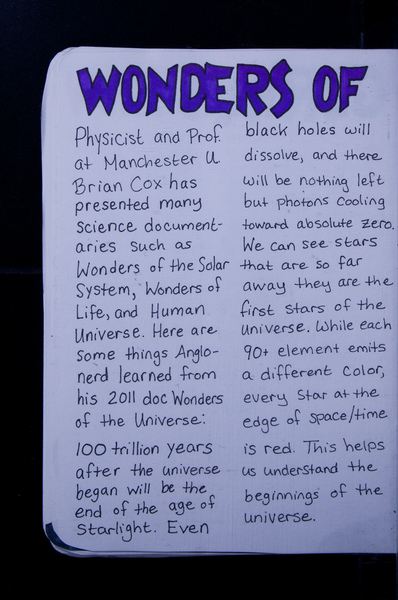 WONDERS OF
Physicist and Prof.
at Manchester U
Brian Cox has
presented many
science document-
aries such as
Wonders of the Solar
System, Wonders of
Life, and Human
Universe. Here are
some things Anglo-
nerd learned from
his 2011 doc Wonders
of the Universe:
100 trillion years
after the universe
began will be the
end of the age of
starlight. Even
black holes will
dissolve, and there
will be nothing left
but photons cooling
toward absolute zero.
We can see stars
that are so far
away they are the
first stars of the
universe. While each
90+ element emits
a different color,
every star at the
edge of space/time
is red. This helps
us understand the
beginnings of the
universe.